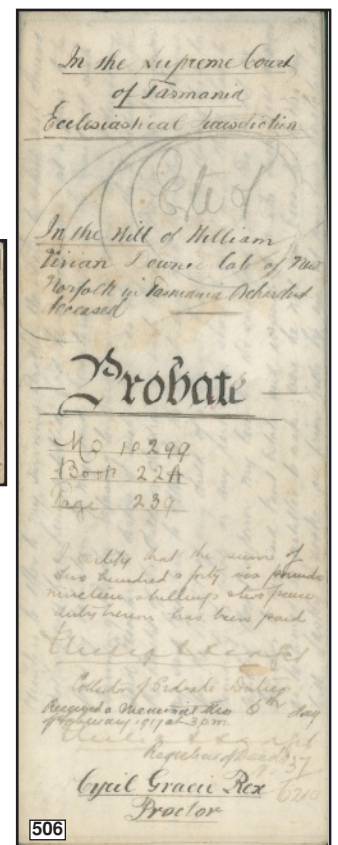 In the Supreme Court
of Tasmania
Ecclesiastical Jurisdiction
Ent'd
In the Will of William
Vivian late of New
Norfolk in Tasmania Orchardist
deceased
Probate
No 10299
Book 22A
Page 239
I certify that the sum of
two hundred & forty pounds
nineteen shillings & two pence
duty herein has been paid
Collector of Probate Duties
Received a Memorial this 5th day
of February 1917 at 3 p.m.
Registrar of Deeds
37
6210
Cyril Gracie Rex
Proctor
506